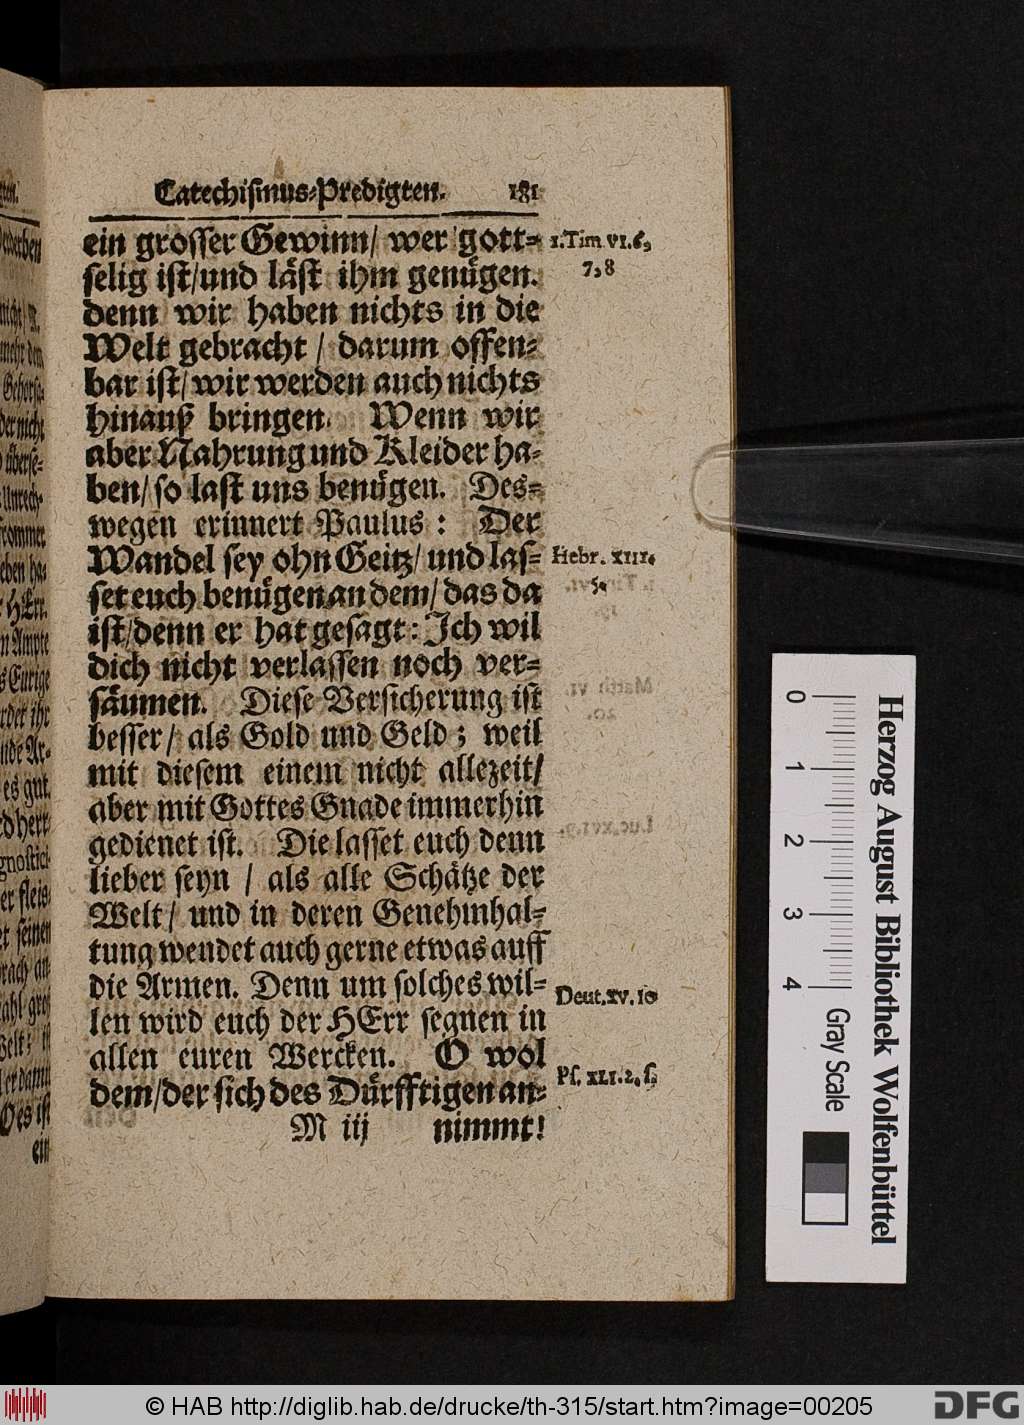 Catechismus-Predigten. 181
ein grosser Gewinn/ wer gott-
selig ist/und läst ihm genügen.
denn wir haben nichts in die
Welt gebracht / darum offen-
bar ist/ wir werden auch nichts
hinauß bringen. Wenn wir
aber Nahrung und Kleider ha-
ben/ so last uns benügen. Des-
wegen erinnert Paulus: Der
Wandel sey ohn Geitz/ und las-
set euch benügen an dem/ das da
ist/denn er hat gesagt: Ich wil
dich nicht verlassen noch ver-
säumen. Diese Versicherung ist
besser/ als Gold und Geld; weil
mit diesem einem nicht allezeit/
aber mit Gottes Gnade immerhin
gedienet ist. Die lasset euch denn
lieber seyn / als alle Schätze der
Welt/ und in deren Genehmhal-
tung wendet auch gerne etwas auff
die Armen. Denn um solches wil-
len wird euch der HErr segnen in
allen euren Wercken. O wol
dem/der sich des Dürfftigen an-
M iij nimmt!
1.Tim vi.6,
7,8
Hebr. XIII.
5.
Deut.xv.10
Ps. XLI.2,s.
0 1 2 3 4 Gray Scale
Herzog August Bibliothek Wolfenbüttel
© HAB http://diglib.hab.de/drucke/th-315/start.htm?image=00205
DFG